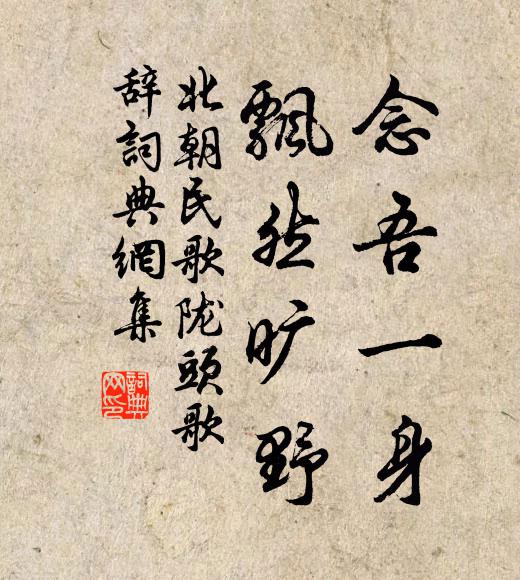 念吾一身
飘然旷野
北朝民歌陇頭歌
辞詞典網集
詞典
网印